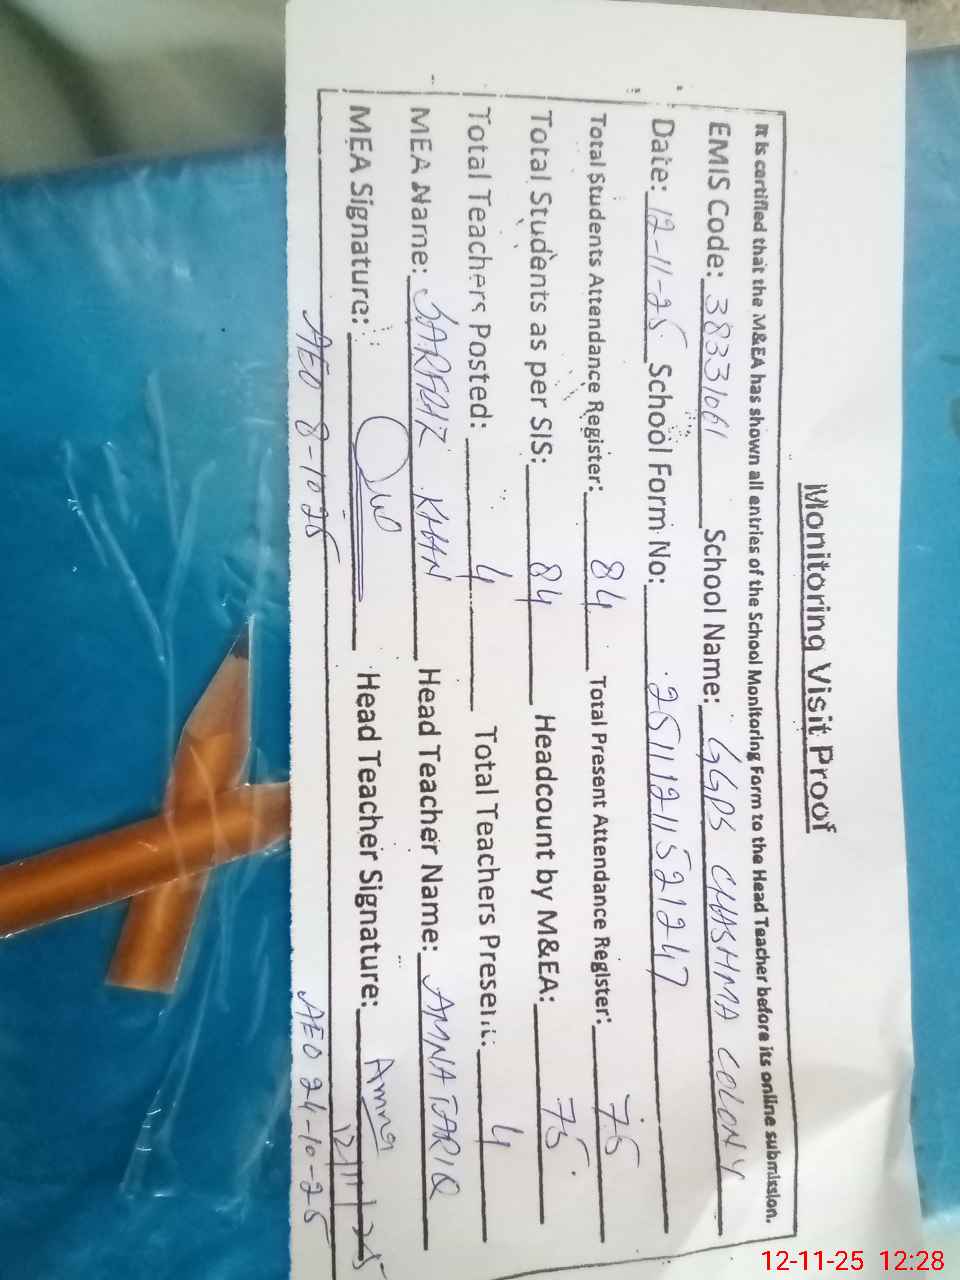 Monitoring Visit Proof
It is certified that the M&EA has shown all entries of the School Monitoring Form to the Head Teacher before its online submission.
EMIS Code: 38331061 School Name: GGPS CHASHMA COLONY
Date: 12-11-25 School Form No: 25111211521247
Total Students Attendance Register: 84 Total Present Attendance Register: 75
Total Students as per SIS: 84 Headcount by M&EA: 75
Total Teachers Posted: 4 Total Teachers Present: 4
MEA Name: SARFRAZ KHAN Head Teacher Name: AMNA TARIQ
MEA Signature: Head Teacher Signature: Amna
12/11/25
AEO 8-10-25 AEO 24-10-25
12-11-25 12:28